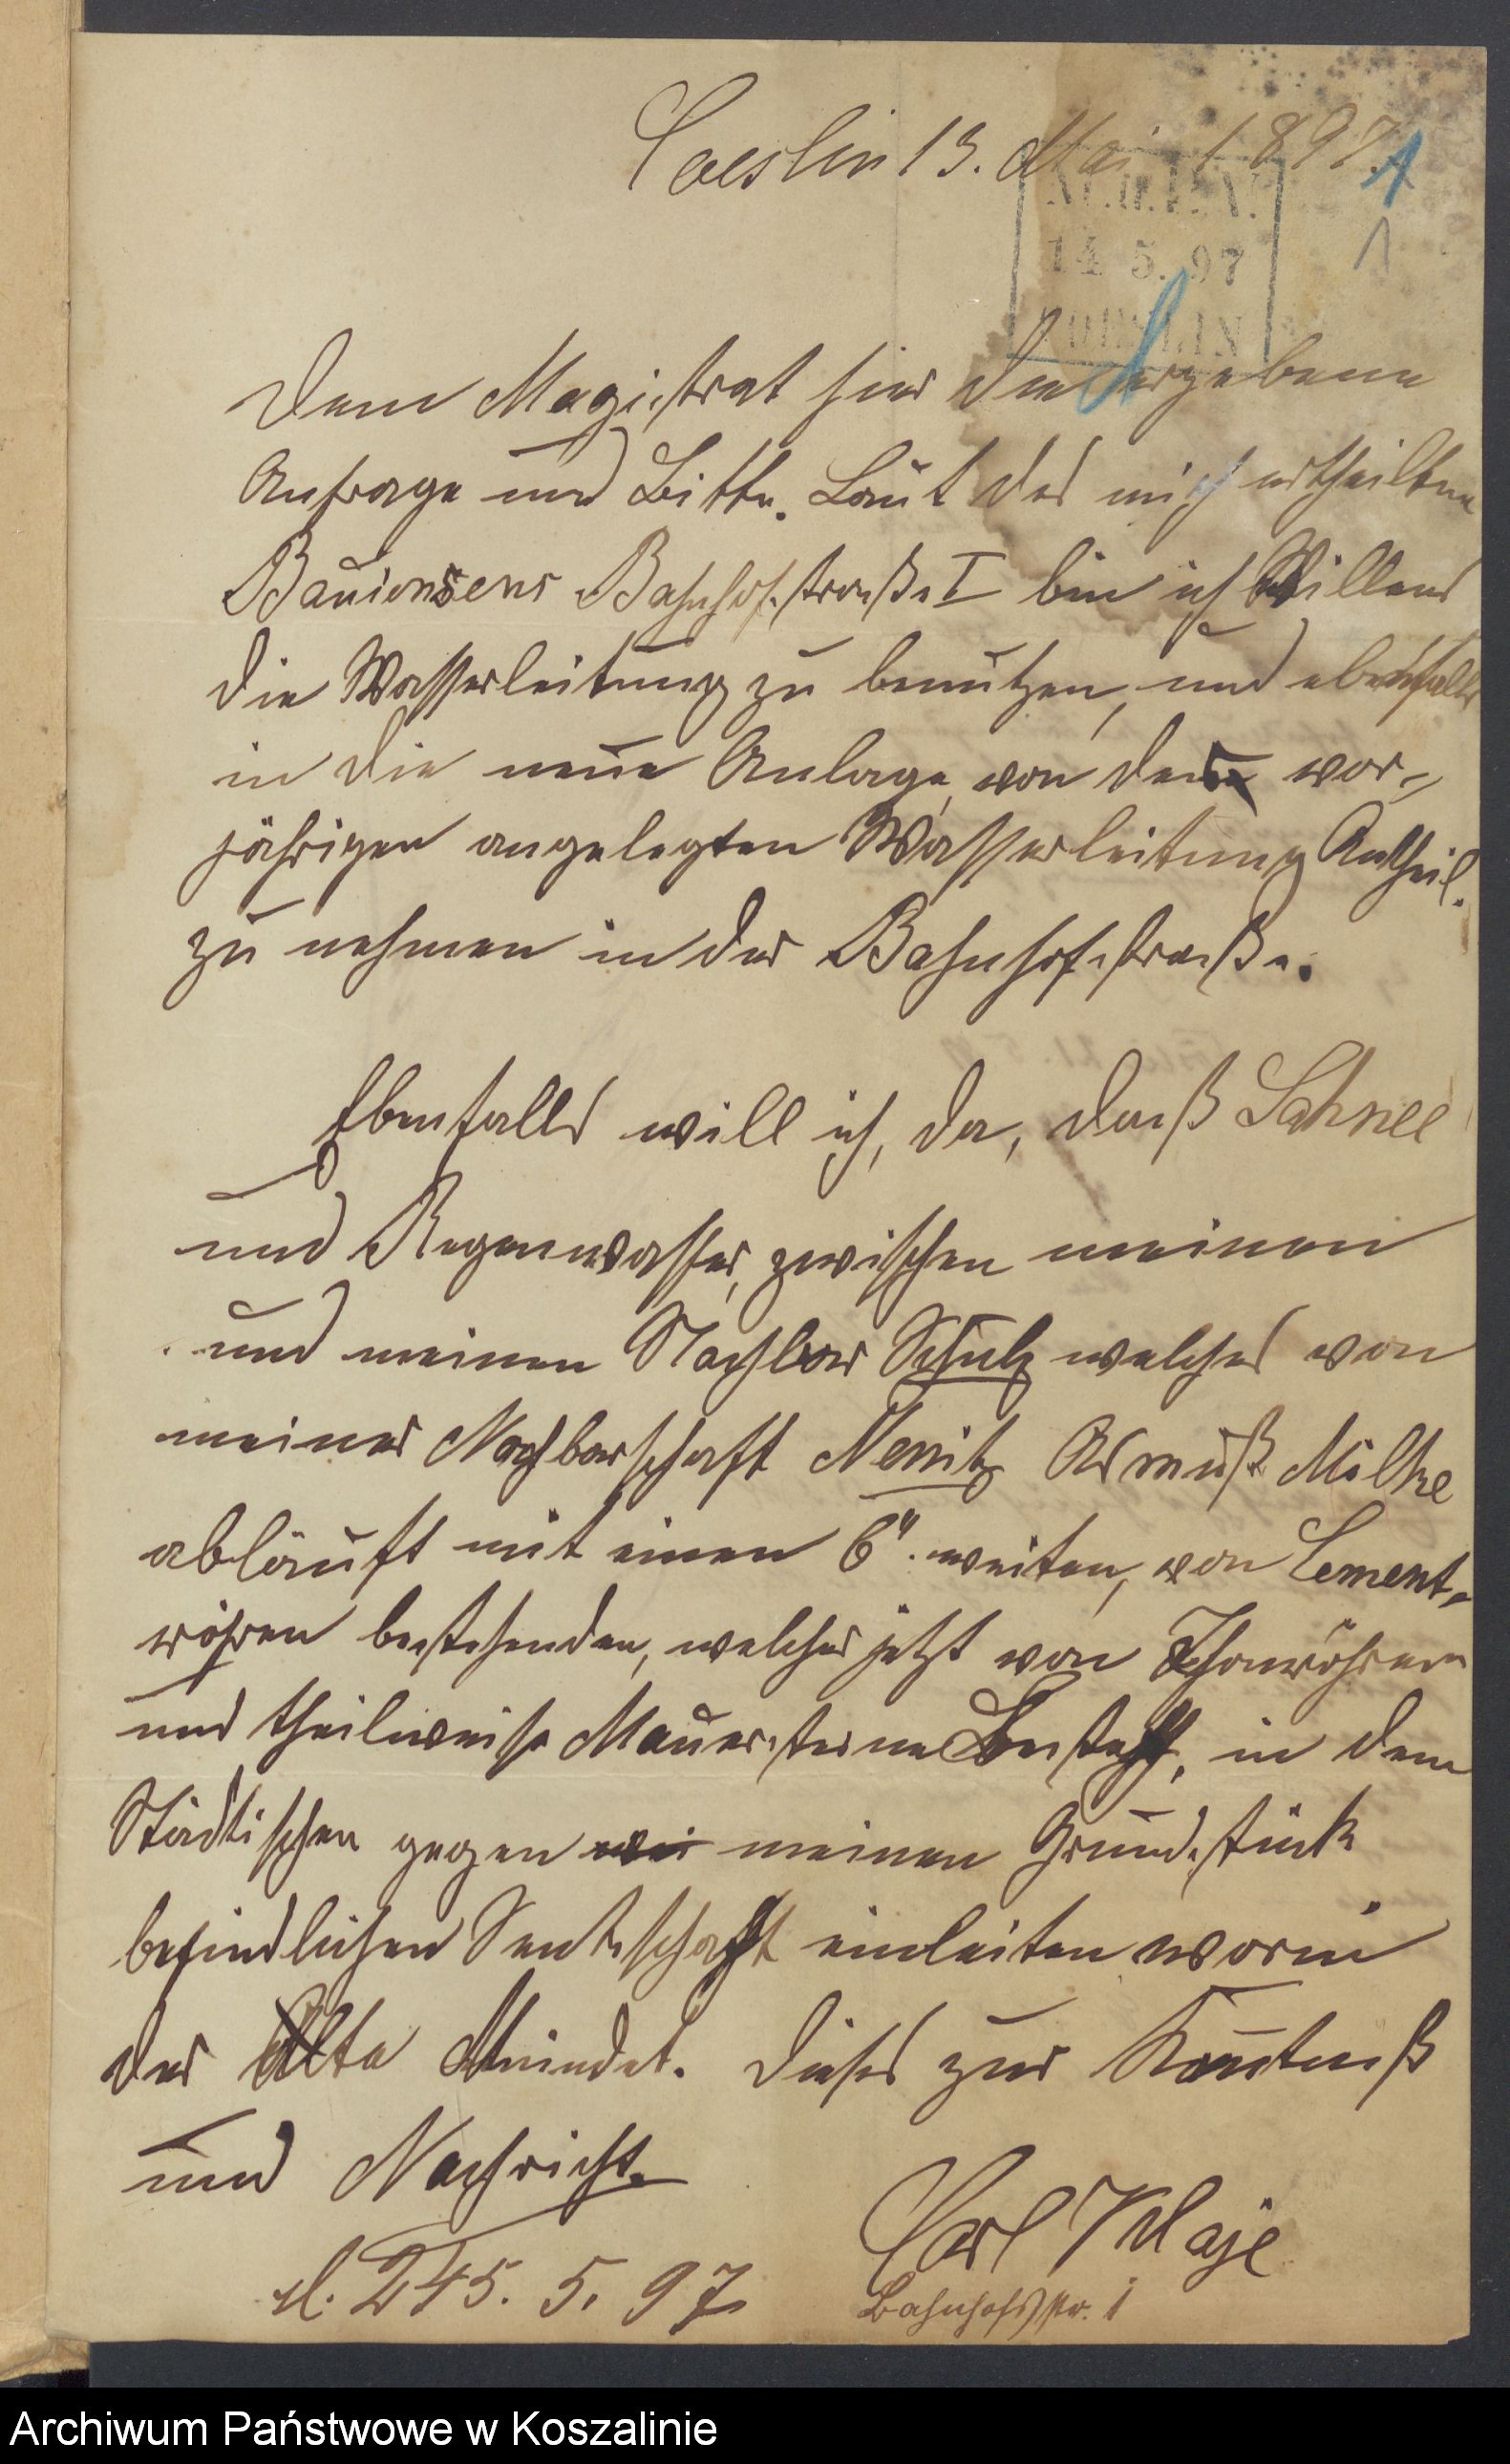 Coeslin 13. Mai 1897.
1
1
14. 5. 97
COESLIN
Dem Magistrat hier die ergebene
Anfrage und Bitte. Laut des mich ertheilten
Bauionsens Bahnhofstraße I bin ich Willens
die Wasserleitung zu benutzen, und ebenfalls
in die neue Anlage, von der vor-
jährigen angelegten Wasserleitung Antheil
zu nehmen in der Bahnhofstraße.
Ebenfalls will ich, da, daß Schnee
und Regenwasser, zwischen meinen
und meinen Nachbar Schulz welches von
meiner Nachbarschaft Milke
abläuft mit einen 6". weiten, von Cement-
röhren bestehenden, welcher jetzt von Thonröhren
und theilweise Mauersteine besteht, in dem
Städtischen gegen meinen Grundstück
befindlichen Senkschaft einleiten worin
der Alte Mündet. Dieses zur Kenntniß
und Nachricht.
Carl
Bahnhofstr. 1
5. 97
Archiwum Państwowe w Koszalinie